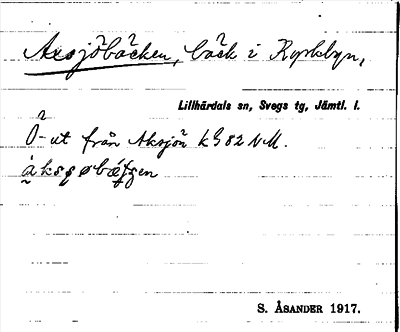 Axsjöbäcken, bäck i Kyrkbyn,
Lillhärdals sn, Svegs tg, Jämtl. l.
Ö- ut från Aksjön k G 82 N M.
S. ÅSANDER 1917.